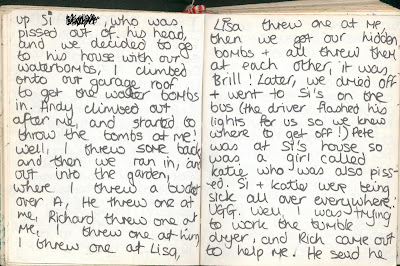 up Si , who was
pissed out of his head,
and we decided to go
to his house with our
waterbombs, I climbed
onto our garage roof
to get the water bombs
in. Andy climbed out
after me, and started to
throw the bombs at me!
Well, I threw some back
and then we ran in, and
out into the garden,
where I threw a bucket
over A, He threw one at
me, Richard threw one at
me, I threw one at him,
I threw one at Lisa,
Lisa threw one at me,
then we got our hidden
bombs + all threw them
at each other, it was
Brill! Later, we dried off
+ went to Si's on the
bus (the driver flashed his
lights for us so we knew
where to get off!) Pete
was at Si's house, so
was a girl called
Katie who was also piss-
ed. Si + Katie were being
sick all over everywhere.
UGG. Well, I was trying
to work the tumble
dryer, and Rich came out
to help me. He said he